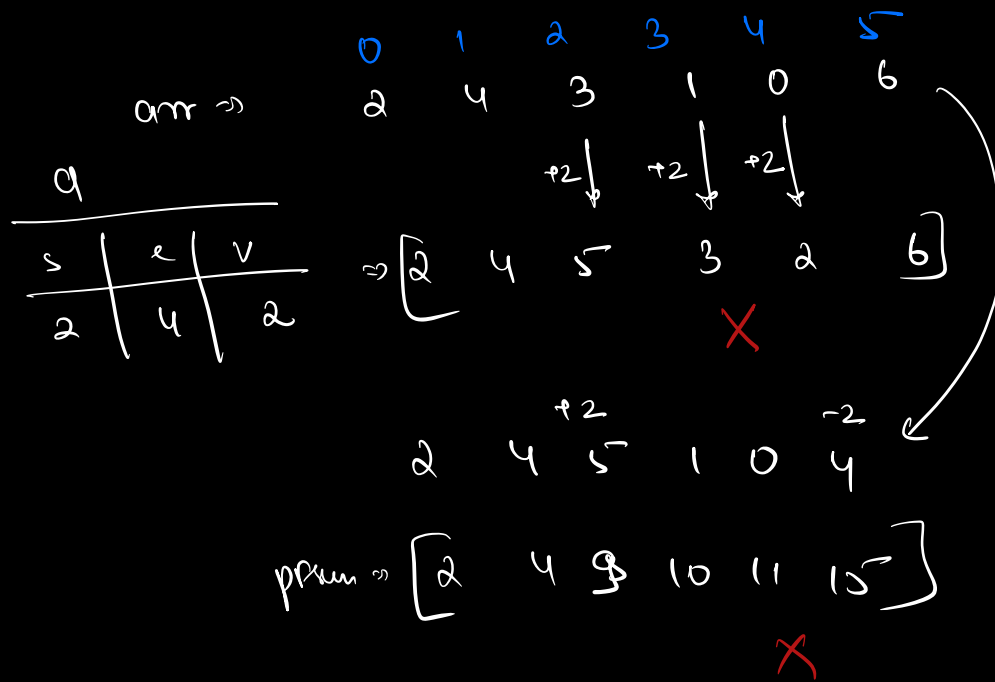 0 1 2 3 4 5
arr => 2 4 3 1 0 6
+2 +2 +2
q
s e v
2 4 2
=> [2 4 5 3 2 6]
X
+2 -2
2 4 5 1 0 4
=> [2 4 9 10 11 15]
X